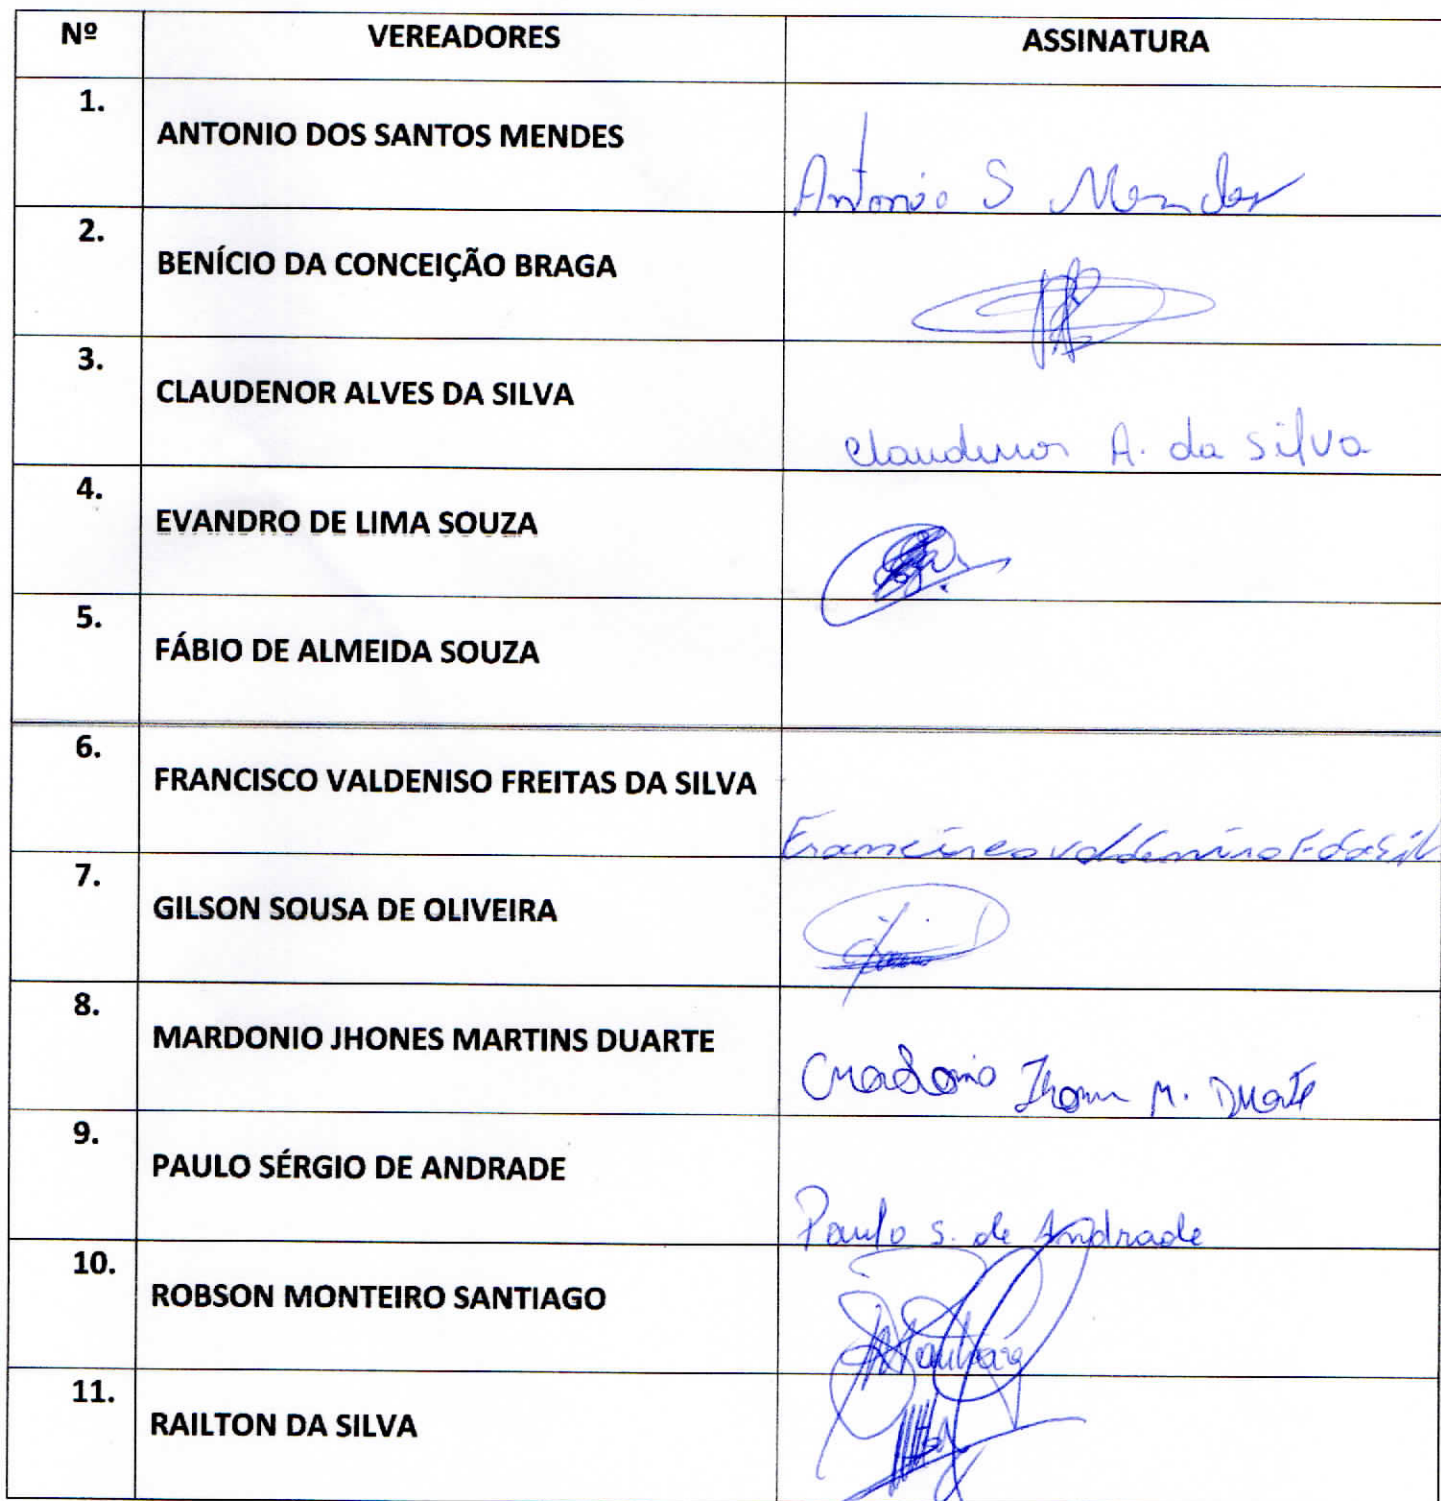 Nº VEREADORES ASSINATURA
1.
ANTONIO DOS SANTOS MENDES
Antonio S Mendes
2.
BENÍCIO DA CONCEIÇÃO BRAGA
3.
CLAUDENOR ALVES DA SILVA
Claudenor A. da Silva
4.
EVANDRO DE LIMA SOUZA
5.
FÁBIO DE ALMEIDA SOUZA
6.
FRANCISCO VALDENISO FREITAS DA SILVA
Francisco Valdeniso F. da Sil
7.
GILSON SOUSA DE OLIVEIRA
8.
MARDONIO JHONES MARTINS DUARTE
M. Duarte
9.
PAULO SÉRGIO DE ANDRADE
Paulo S. de Andrade
10.
ROBSON MONTEIRO SANTIAGO
11.
RAILTON DA SILVA